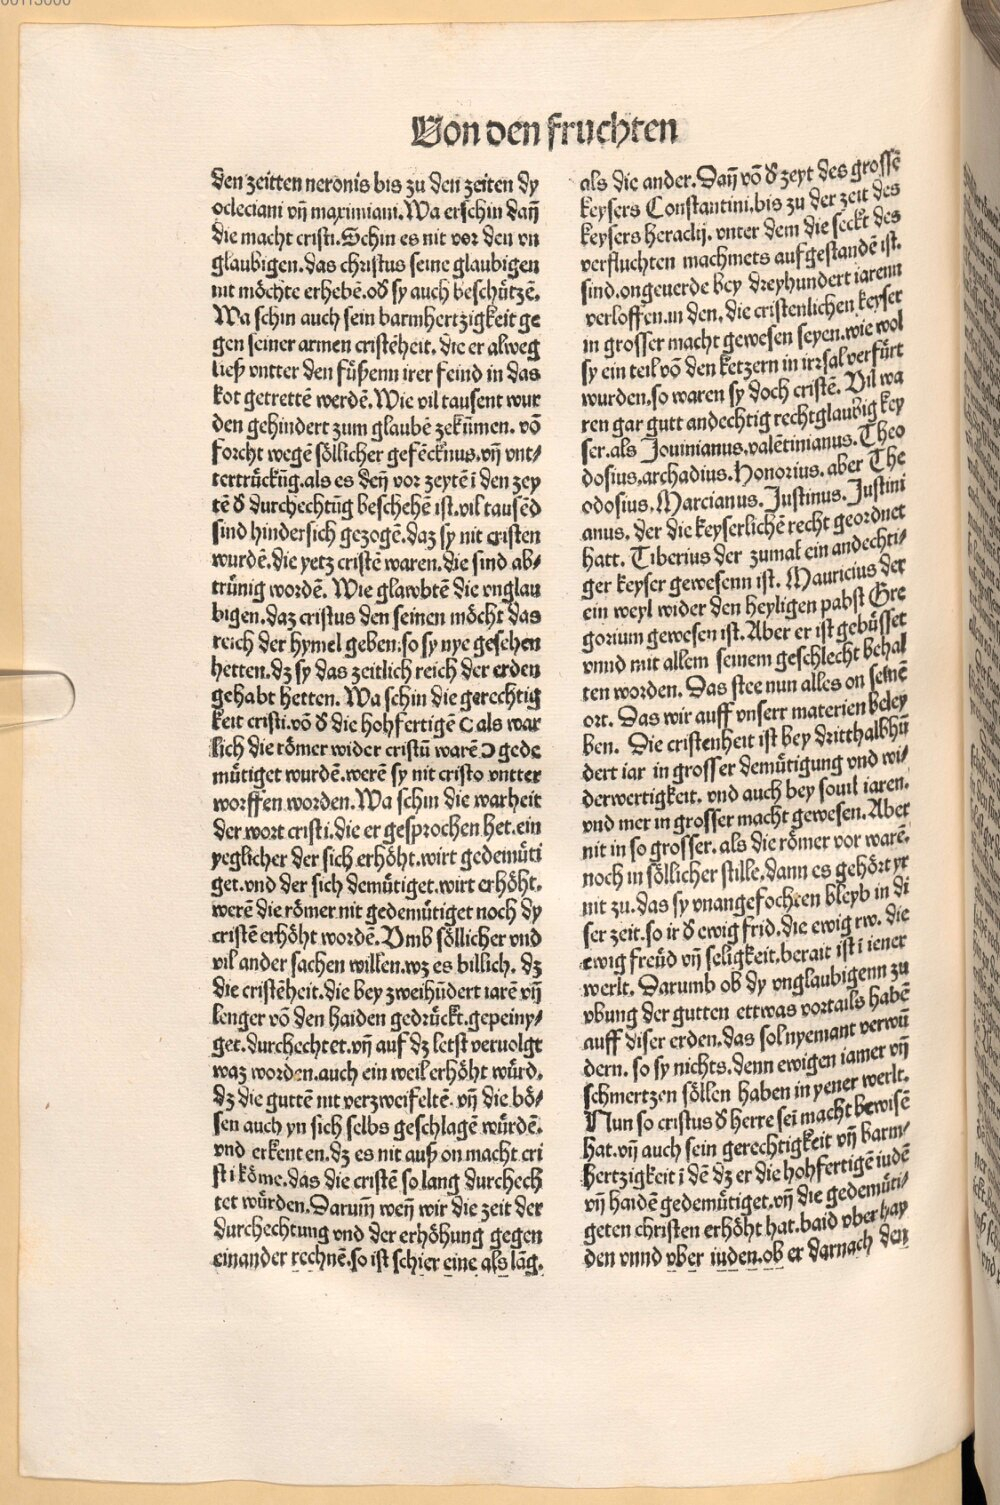 Von den fruchten
den zeitten neronis bis zu den zeiten dy
ocleciani vñ maximiani. Wa erschin dañ
die macht cristi. Schin es nit vor den vn
glaubigen. das christus seine glaubigen
nit möchte erhebē. od̄ sy auch beschützē.
Wa schin auch sein barmhertzigkeit ge
gen seiner armen cristēheit. die er alweg
ließ vntter den füßenn irer feind in das
kot getrettē werdē. Wie vil tausent wur
den gehindert zum glaubē zekūmen. vō
forcht wegē söllicher gefēcknus. vñ vnt⸗
tertrückūg. als es deñ vor zeytē ī den zey
tē d̄ durchechtūg beschehē ist. vil tausēd
sind hindersich gezogē. daz sy nit cristen
wurdē. die yetz cristē waren. die sind ab⸗
trünig wordē. Wie glawbtē die vnglau
bigen. daz cristus den seinen möcht das
reich der hymel geben: so sy nye gesehen
hetten. dz sy das zeitlich reich der erden
gehabt hetten. Wa schin die gerechtig
keit cristi. vō d̄ die hohfertigē ( als war
lich die römer wider cristū warē ) gede
mütiget wurdē. werē sy nit cristo vntter
worffen worden. Wa schin die warheit
der wort cristi. die er gesprochen het. ein
yeglicher der sich erhöht. wirt gedemüti
get. vnd der sich demütiget. wirt erhöht.
werē die römer nit gedemütiget noch dy
cristē erhöht wordē. Vmb söllicher vnd
vil ander sachen willen. wz es billich. dz
die cristēheit. die bey zweihūdert iarē vñ
lenger vō den haiden gedrückt. gepeiny⸗
get. durchechtet. vñ auf dz letst veruolgt
waz worden. auch ein weil erhöht würd.
dz die guttē nit verzweifeltē. vñ die bö⸗
sen auch yn sich selbs geschlagē würdē.
vnd erkenten. dz es nit auß on macht cri
sti köme. das die cristē so lang durchech
tet würden. Darum̄ weñ wir die zeit der
durchechtung vnd der erhöhung gegen
einander rechnē. so ist schier eine als lāg.
als die ander. Dañ vō d̄ zeyt des grossē
keysers Constantini. bis zu der zeit des
keysers heraclij. vnter dem die seckt des
verfluchten machmets aufgestandē ist.
sind. ongeuerde bey dreyhundert iarenn
verloffen. in den. die cristenlichen keyser
in grosser macht gewesen seyen. wie wol
sy ein teil vō den ketzern in irrsal verfürt
wurden. so waren sy doch cristē. Vil wa
ren gar gutt andechtig rechtglaubig key
ser. als Jouinianus. valētinianus. Theo
dosius. archadius. Honorius. aber The
odosius. Marcianus. Justinus. Justini
anus. der die keyserlichē recht geordnet
hatt. Tiberius der zumal ein andechti⸗
ger keyser gewesenn ist. Mauricius der
ein weyl wider den heyligen pabst Gre
gorium gewesen ist. Aber er ist gebüsset
vnnd mit allem seinem geschlecht behal
ten worden. Das stee nun alles on seinē
ort. Das wir auff vnserr materien beley
ben. Die cristenheit ist bey dritthalbhū
dert iar in grosser demütigung vnd wi⸗
derwertigkeit. vnd auch bey souil iaren.
vnd mer in grosser macht gewesen. Aber
nit in so grosser. als die römer vor warē.
noch in söllicher stille. dann es gehört yr
nit zu. das sy vnangefochten bleyb in di
ser zeit. so ir d̄ ewig frid. die ewig rw. die
ewig freüd vñ seligkeit. berait ist ī iener
werlt. Darumb ob dy vnglaubigenn zu
vbung der gutten ettwas vortails habē
auff diser erden. das sol nyemant verwū
dern. so sy nichts. denn ewigen iamer vñ
schmertzen söllen haben in yener werlt.
Nun so cristus d̄ herre sei macht bewisē
hat. vñ auch sein gerechtigkeit vñ barm⸗
hertzigkeit ī dē dz er die hohfertigē iudē
vñ haidē gedemütiget. vñ die gedemüti⸗
geten christen erhöht hat. baid vber hay
den vnnd vber iuden. ob er darnach den